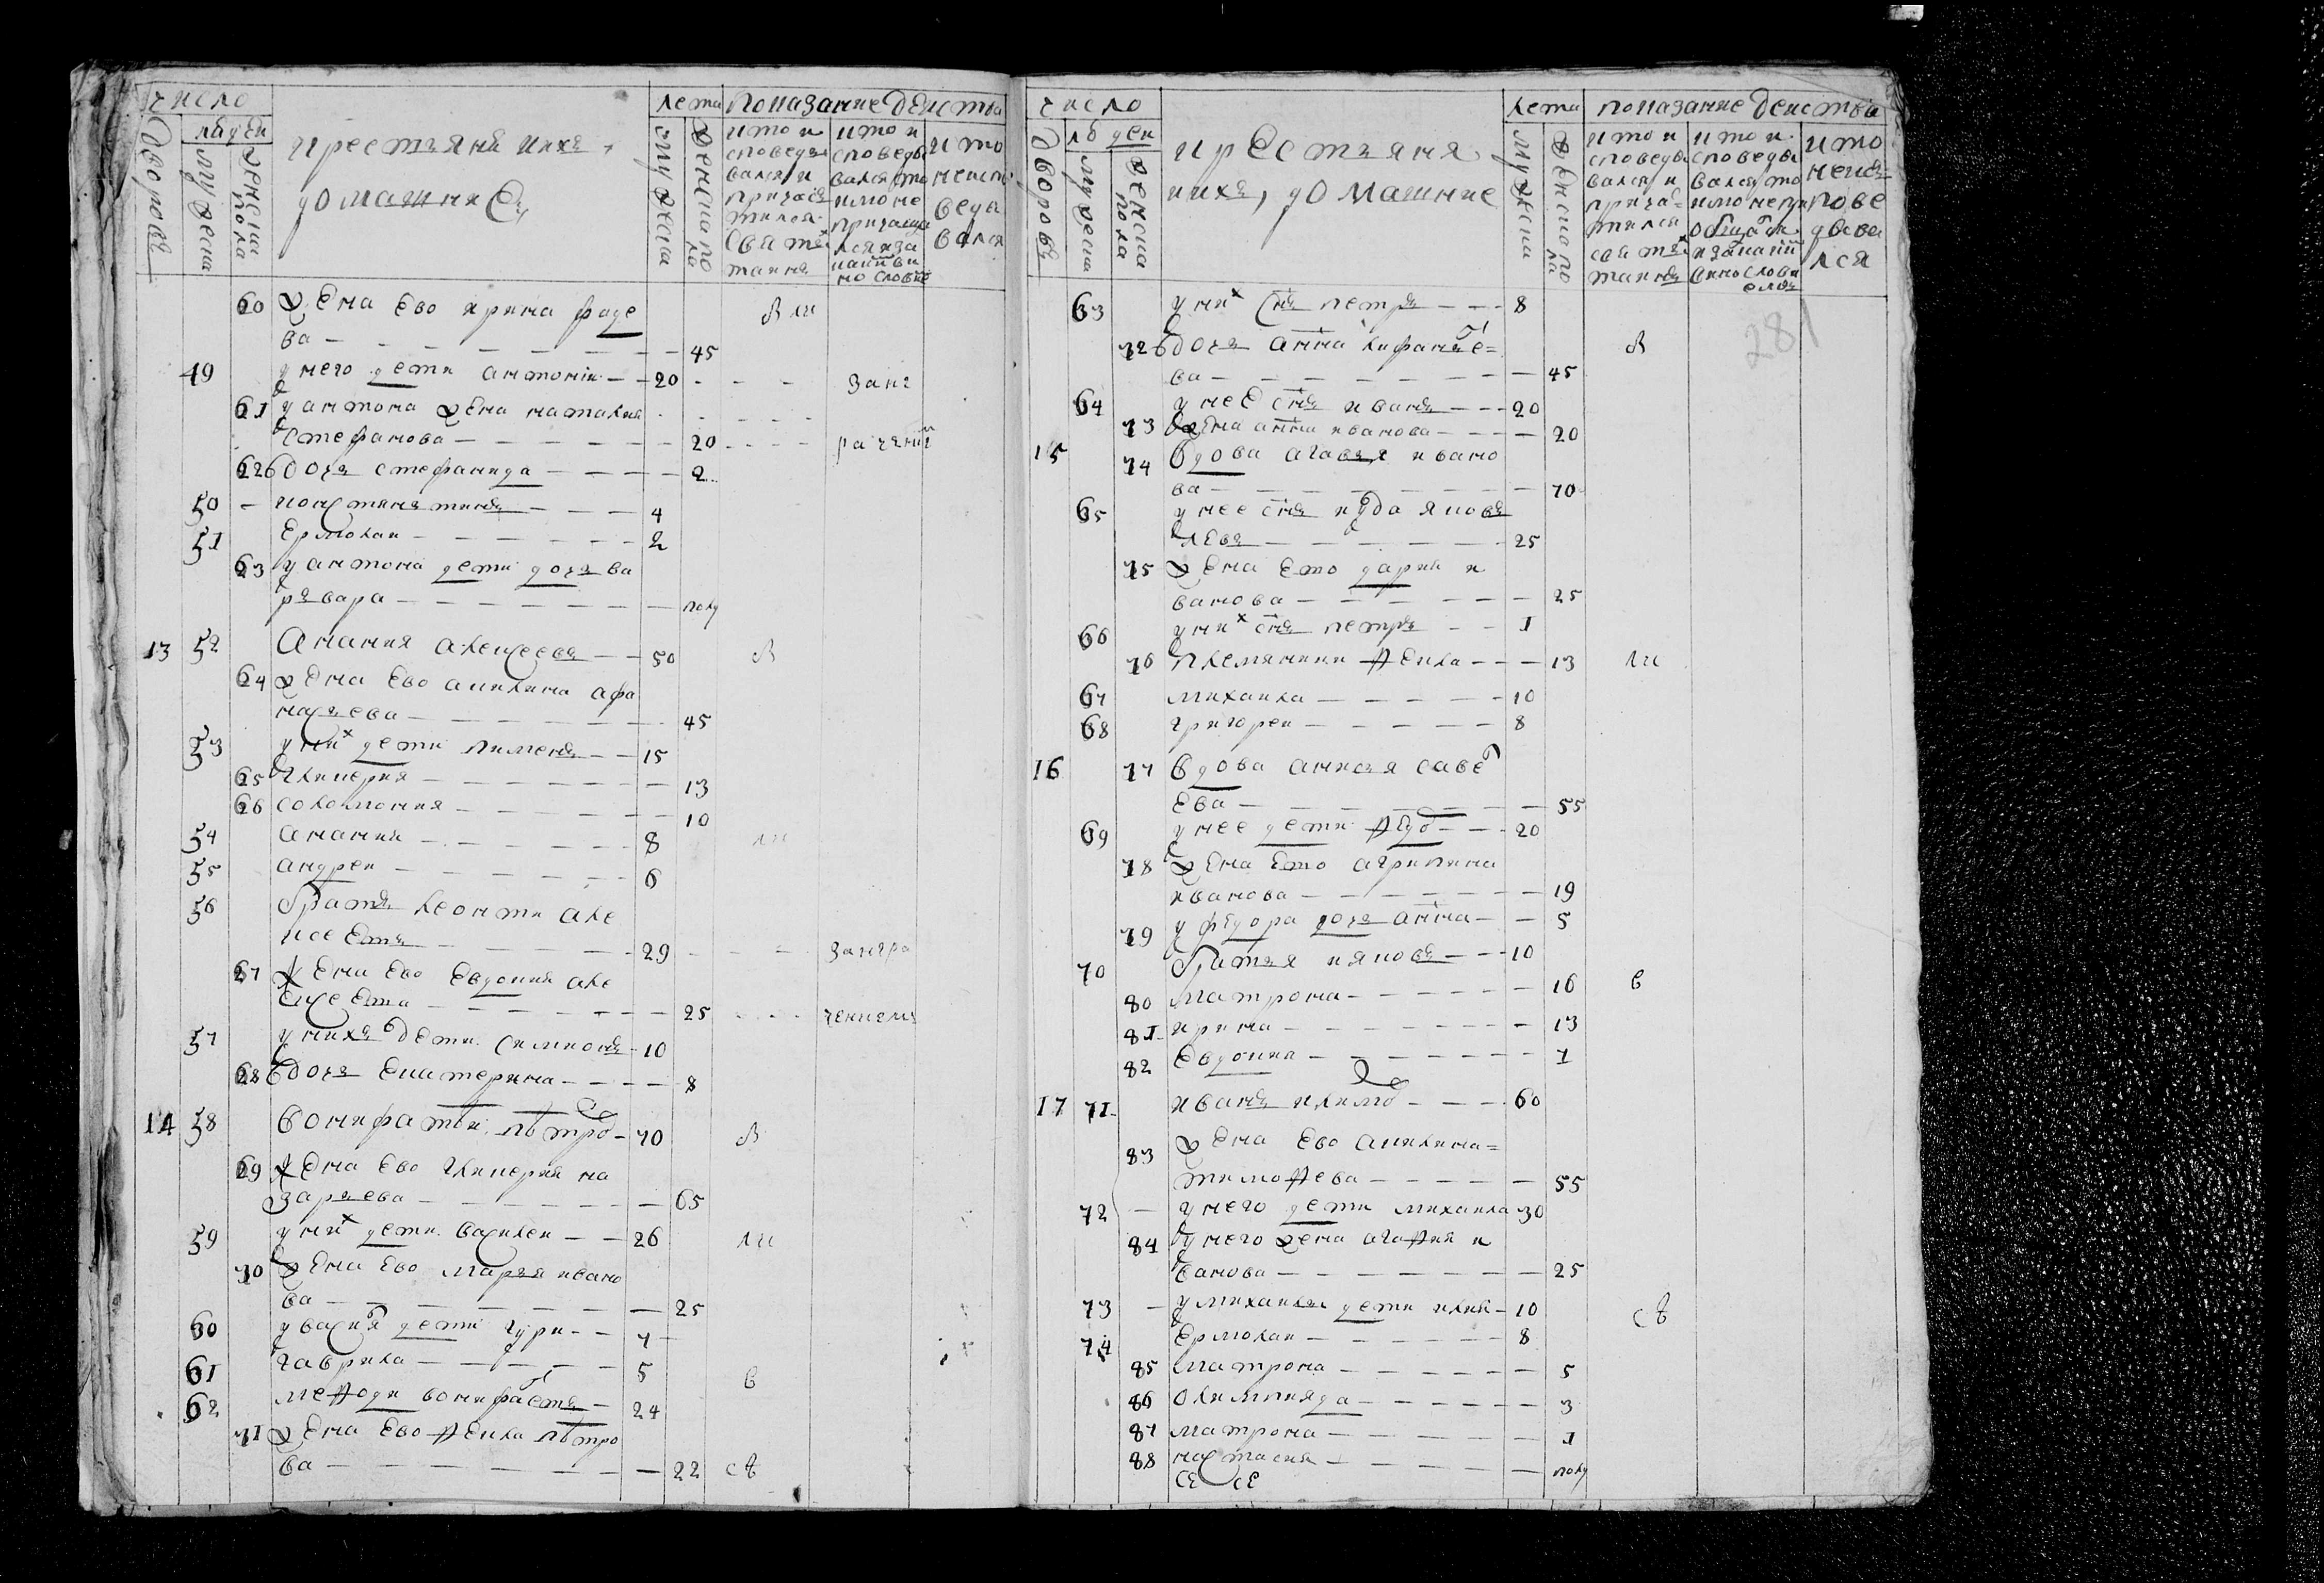 число
людеи
дворовъ
мужеска
женска пола
крестьянъ ихъ
домашнихъ
лета
мужеска
женска пола
показание деиства
кто и
споведы
вался и
причас
тился
святых
таинъ
кто и
споведы
вался то
кмо не
причаща
лся и за
каки ви
нословие
кто
неиспо
веды
вался
60 жена ево ирина фаде
ва — 45
49 у него дети антонъ — 20 занс
61 у антона жена наталия
стефанова — 20 рачени
62 дочь стефанида — 2
50 констянътинъ — 4
51 ермолаи — 2
63 у антона дети дочь ва
ръвара — полу
13 52 Анания алексеевъ — 50 в
64 жена ево акилина афа
насьева — 45
53 у них дети пименъ — 15
65 гликерия — 13
66 соломония — 10
54 анания — 8 ли
55 андреи — 6
56 братъ леонти але
ксеевъ — 29 занера
67 жена ево евдокия але
ксеева — 25 чениемъ
57 у нихъ дети симионъ — 10
68 дочь екатерина — 8
14 58 вонифатьи петро — 70 в
69 жена ево гликерия на
зарьева — 65
59 у них дети василеи — 26 ли
70 жена ево марья ивано
ва — 25
60 у васия дети гури — 7
61 гаврила — 5 в
62 меѳоди вонифатевъ — 24
71 жена ево ѳекла петро
ва — 22 съ
число
людеи
дворовъ
мужеска
женска
пола
крестьянъ
ихъ, домашние
лета
мужеска
женска пола
показание деиства
кто и
споведы
вался и
причас
тился
святых
таинъ
кто и
споведы
вался то
кмо не при
общатъ
и за каки
винослови
емъ
кто
неис
пове
дыва
лся
281
63 у них снъ петръ — 8
72 дочь анна лифантьe=
ва — 45 в
64 у нее снъ иванъ — 20
73 жена анна иванова — 20
15 74 вдова агавья ивано
ва — 70
65 у нее снъ яковъ
левъ — 25
75 жена ево дария и
ванова — 25
66 у них снъ петръ — 1
76 племянники ѳекла — 13 ли
67 михаила — 10
68 григореи — 8
16 77 вдова анисья савее
ева — 55
69 у нее дети ѳедо — 20
78 жена ево агрипина
иванова — 19
79 у фёдора дочь анна — 5
70 братья ияковъ — 10
80 матрона — 16 в
81 ирина — 13
82 евдокия — 7
17 71 иванъ климо — 60
83 жена ево акилина=
тимоѳева — 55
72 у него дети михаила 30
84 у него жена агаѳия и
ванова — 25
73 у михаилы дети илия — 10 съ
74 ермолаи — 8
85 матрона — 5
86 олимпияда — 3
87 матрона — 1
88 настасия — полу